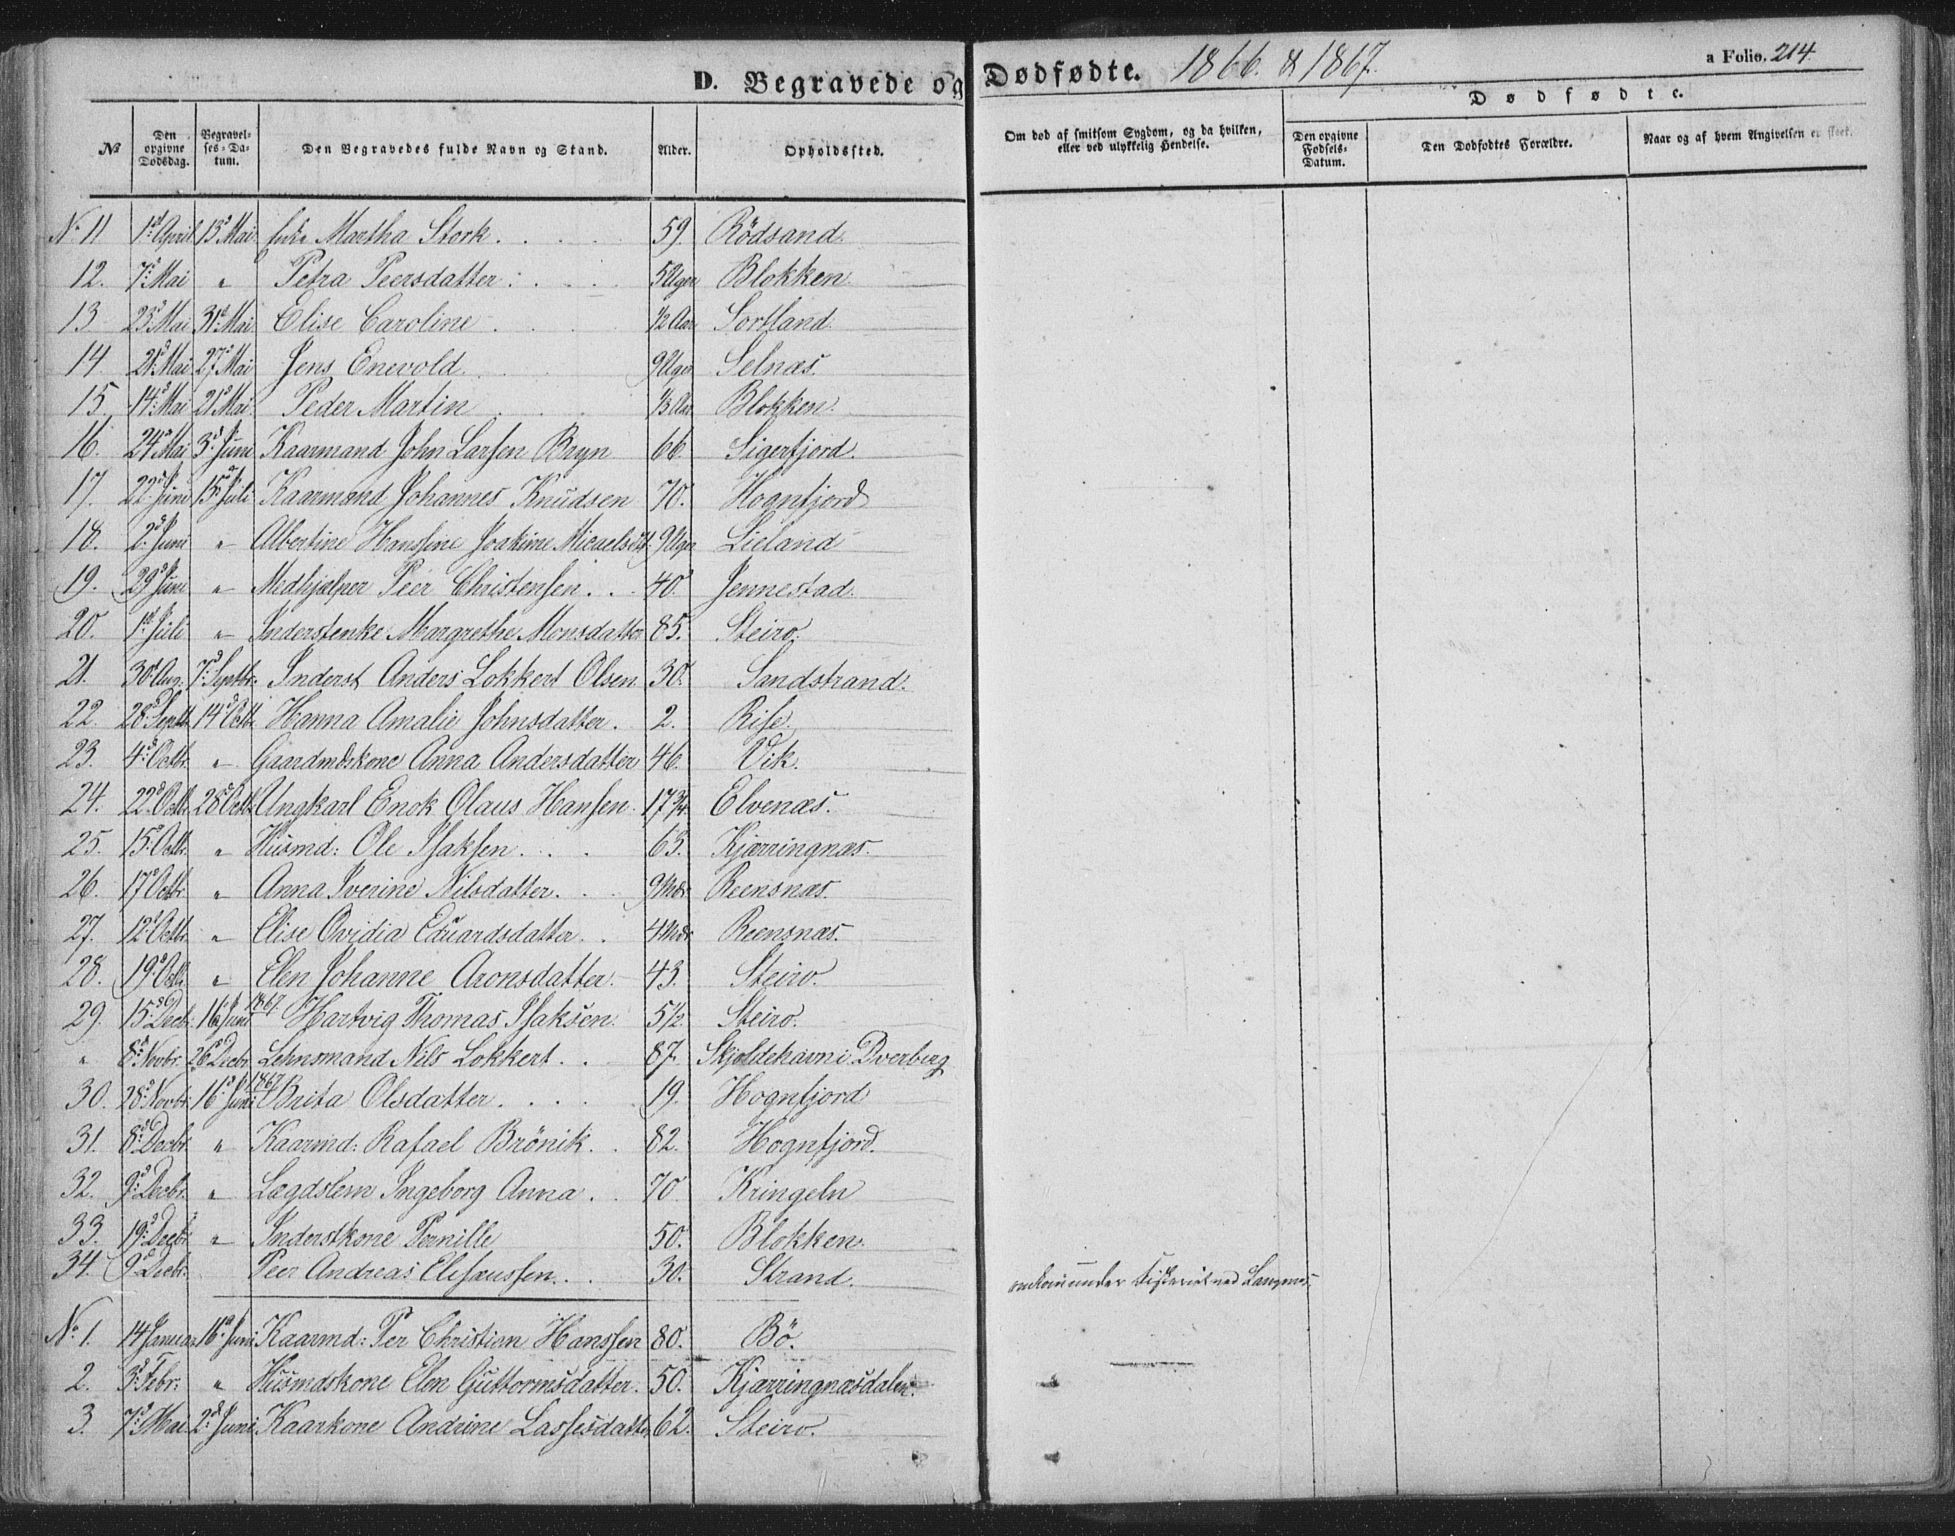 D. Begravede og Dødfødte. 1866. & 1867. a Folio. 214.
Dødfødte.
No
Den opgivne Dødsdag.
Begravelses-Datum.
Den Begravedes fulde Navn og Stand.
Alder.
Opholdssted.
Om død af smitsom Sygdom, og da hvilken, eller ved ulykkelig Hendelse.
Den opgivne Fødsels-Datum.
Den Dødfødtes Forældre.
Naar og af hvem Angivelsen er skeet.
No 11 1ste April 13de Mai Martha Stork. 59. Rödsand.
12. 7de Mai " Petra Peersdatter. 5 Uger Blokken
13 23de Mai 31te Mai Elise Caroline 1/2 Aar Sortland.
14. 21de Mai 27de Mai Jens Enevold. 9 Uger Selnæs.
15. 14de Mai 21de Mai Peder Martin 1/3 Aar Blokken.
16. 24de Mai 3de Juni Kaarmand John Larsen Bryn 66 Sigerfjord.
17. 22de Juni 15de Juli Kaarmand Johannes Knudsen 70. Hognfjord
18. 2de Juni " Albertine Hanssine Joakime Micaelsdtr. 9 Uger Lieland
19. 29de Juni " Medhjælper Peer Christensen. 40. Jennestad.
20. 1ste Juli " Inderstenke Margrethe Monsdatter 85. Steiro.
21. 30te Aug: 7de Septbr. Inderst Anders Lokkert Olsen 30. Sandstrand.
22. 28de Septbr. 14de Octbr. Hanna Amalie Johnsdatter. 2. Rise.
23. 4de Octbr. " Gaardmdskone Anna Andersdatter 46. Vik.
24. 22de Octbr. 28de Octbr. Ungkarl Enok Olaus Hansen. 17 3/4. Elvenæs.
25. 15de Octbr. " Husmd: Ole Isaksen. 63. Kjærringnæs.
26. 17de Octbr. " Anna Iverine Nilsdatter. 9 Mdr. Reensnæs.
27. 12te Octbr. " Elise Ovidia Eduardsdatter. 4 Mdr. Reensnæs.
28. 19de Octbr. " Elen Johanne Aronsdatter. 43. Steiro.
29. 15de Decbr. 16de Juni 1867 Hartvig Thomas Isaksen. 5 1/2 Steiro.
" 8de Novbr. 26de Decbr. Lehnsmand Nils Lokkert. 87. Skjoldehavn i Dverberg
30. 28de Novbr. 16de Juni 1867 Brita Olsdatter. 19. Hognfjord
31. 8de Decbr. " Kaarmd: Rafael Brönik. 82. Hognfjord.
32. 9de Decbr. " Lægdslem Ingeborg Anna. 70 Kringeln
33. 19de Decbr. " Inderstkone Pernille 50. Blokken.
34. 9de Decbr. Peer Andreas Eliseussen. 30. Strand. under Fiskeriet ved Langenes.
No 1. 14 Januar 16de Juni Kaarmd: Per Christian Hanssen 80. Bö.
2. 3de Febr: " Husmdskone Elen Guttormsdatter. 50. Kjærringnæsdalen.
3. 7de Mai 2den Juni Kaarkone Andrine Lassesdatter 62. Steiro.